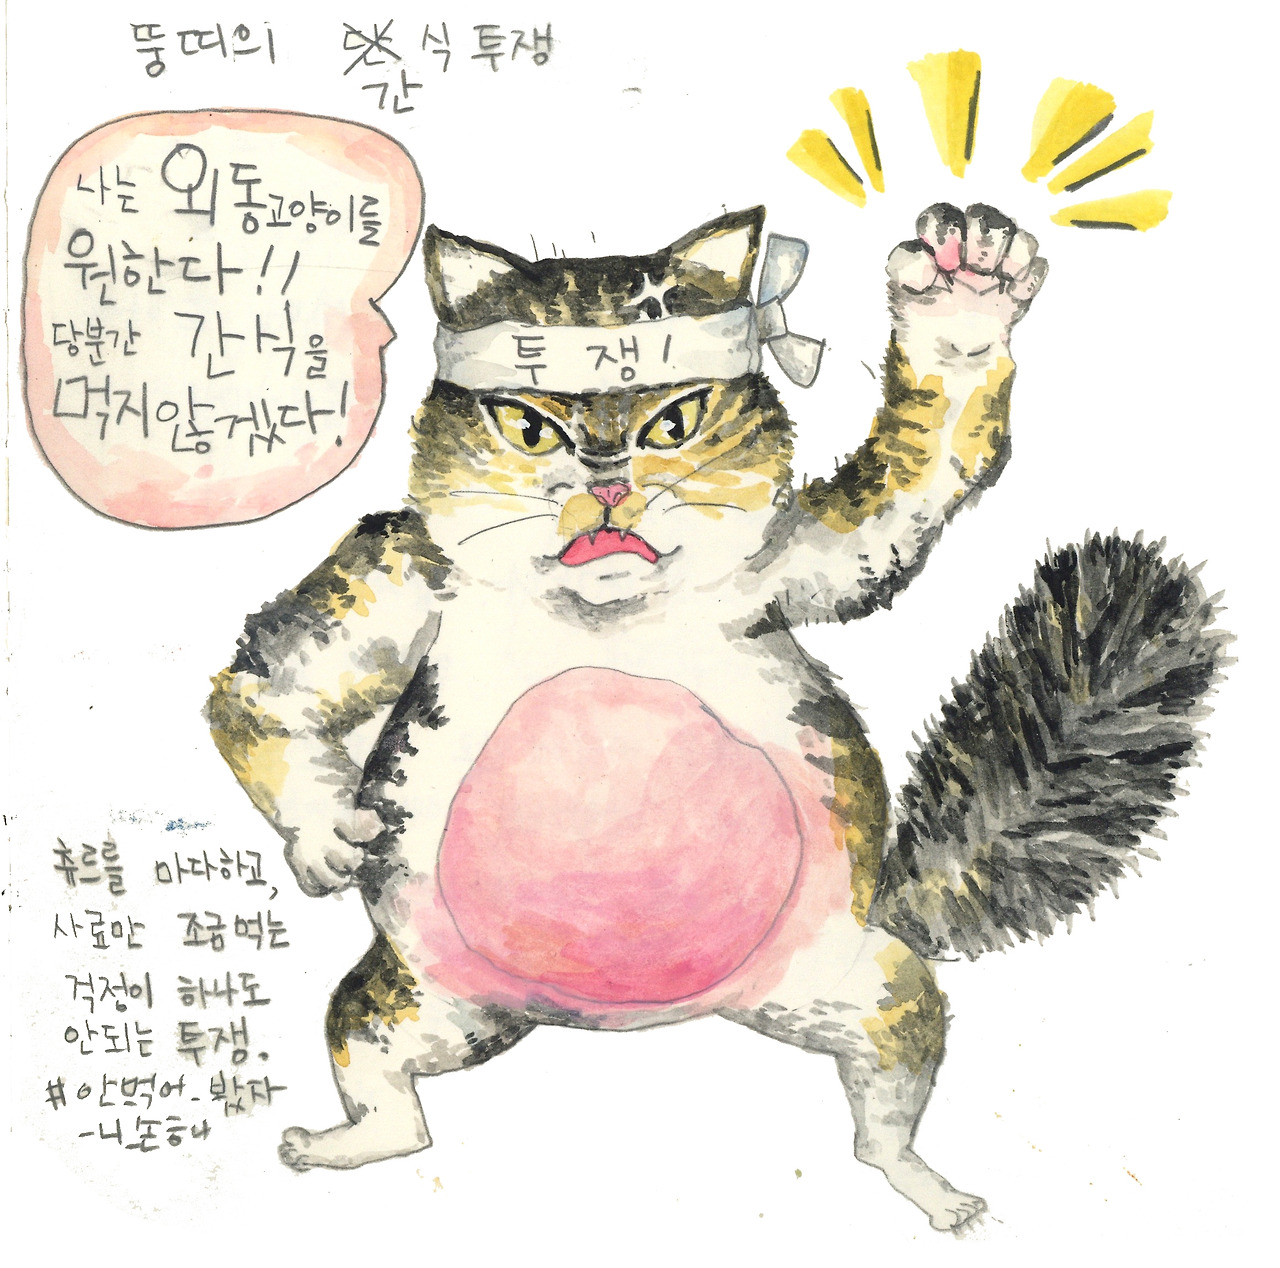 뚱띠의 단식 투쟁
간
나는 외동고양이를
원한다!!
당분간 간식을
먹지않겠다!
투 쟁!
츄르를 마다하고,
사료만 조금먹는
걱정이 하나도
안되는 투쟁.
#안먹어_봤자
_니_손해